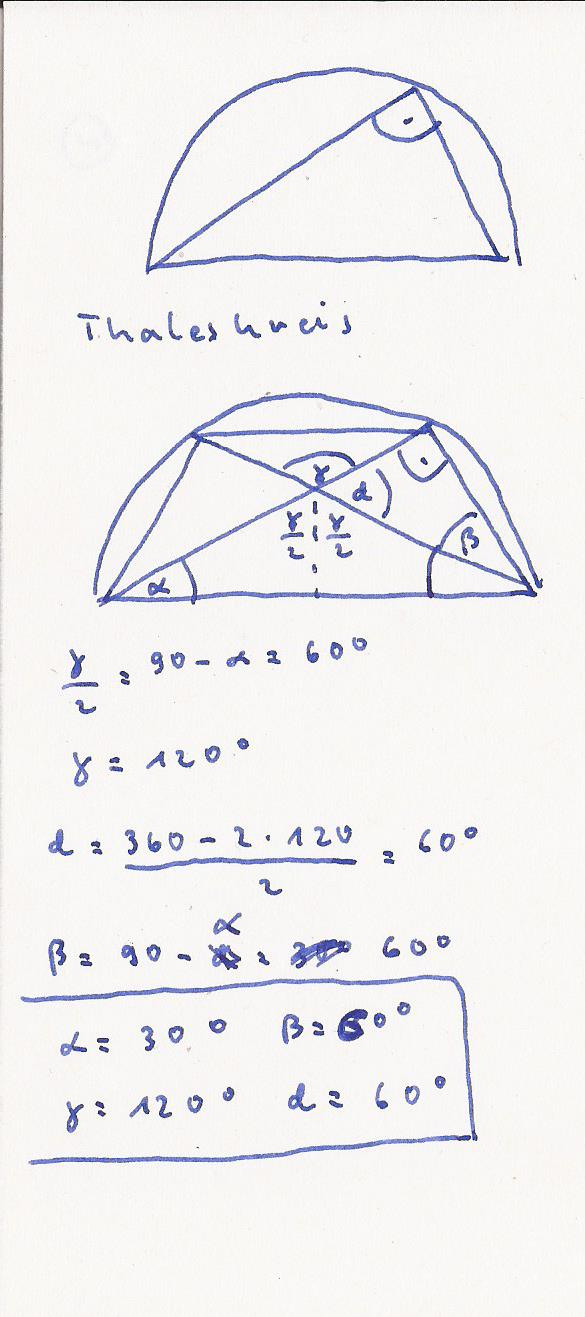 Thaleskreis
γ
α
γ/2 γ/2
β
α
γ/2 = 90 - α = 60°
γ = 120°
d = (360 - 2 · 120)/2 = 60°
β = 90 - α = 60°
α = 30° β = 60°
γ = 120° d = 60°